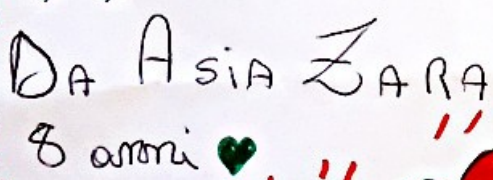 DA ASiA ZARA
8 anni